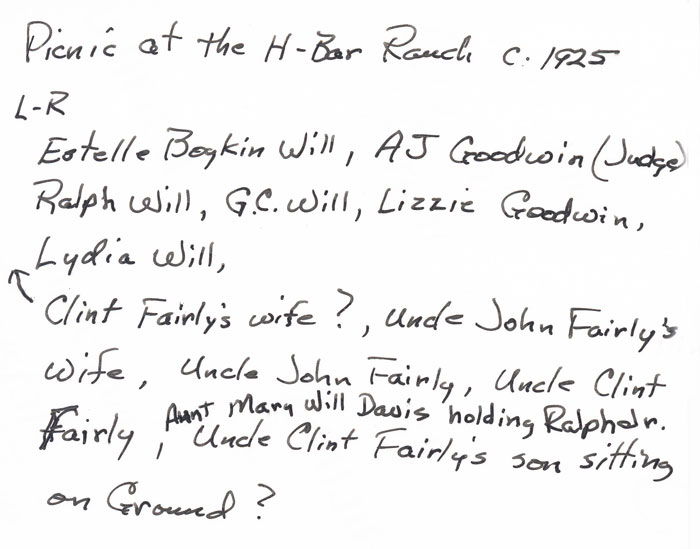 Picnic at the H-Bar Ranch c. 1925
L-R
Estelle Boykin Will, AJ Goodwin (Judge)
Ralph Will, G.C. Will, Lizzie Goodwin,
Lydia Will,
↖ Clint Fairly's wife?, Uncle John Fairly's
wife, Uncle John Fairly, Uncle Clint
Aunt Mary Will Davis holding Ralph Jr.
Fairly, Uncle Clint Fairly's son sitting
on Ground?